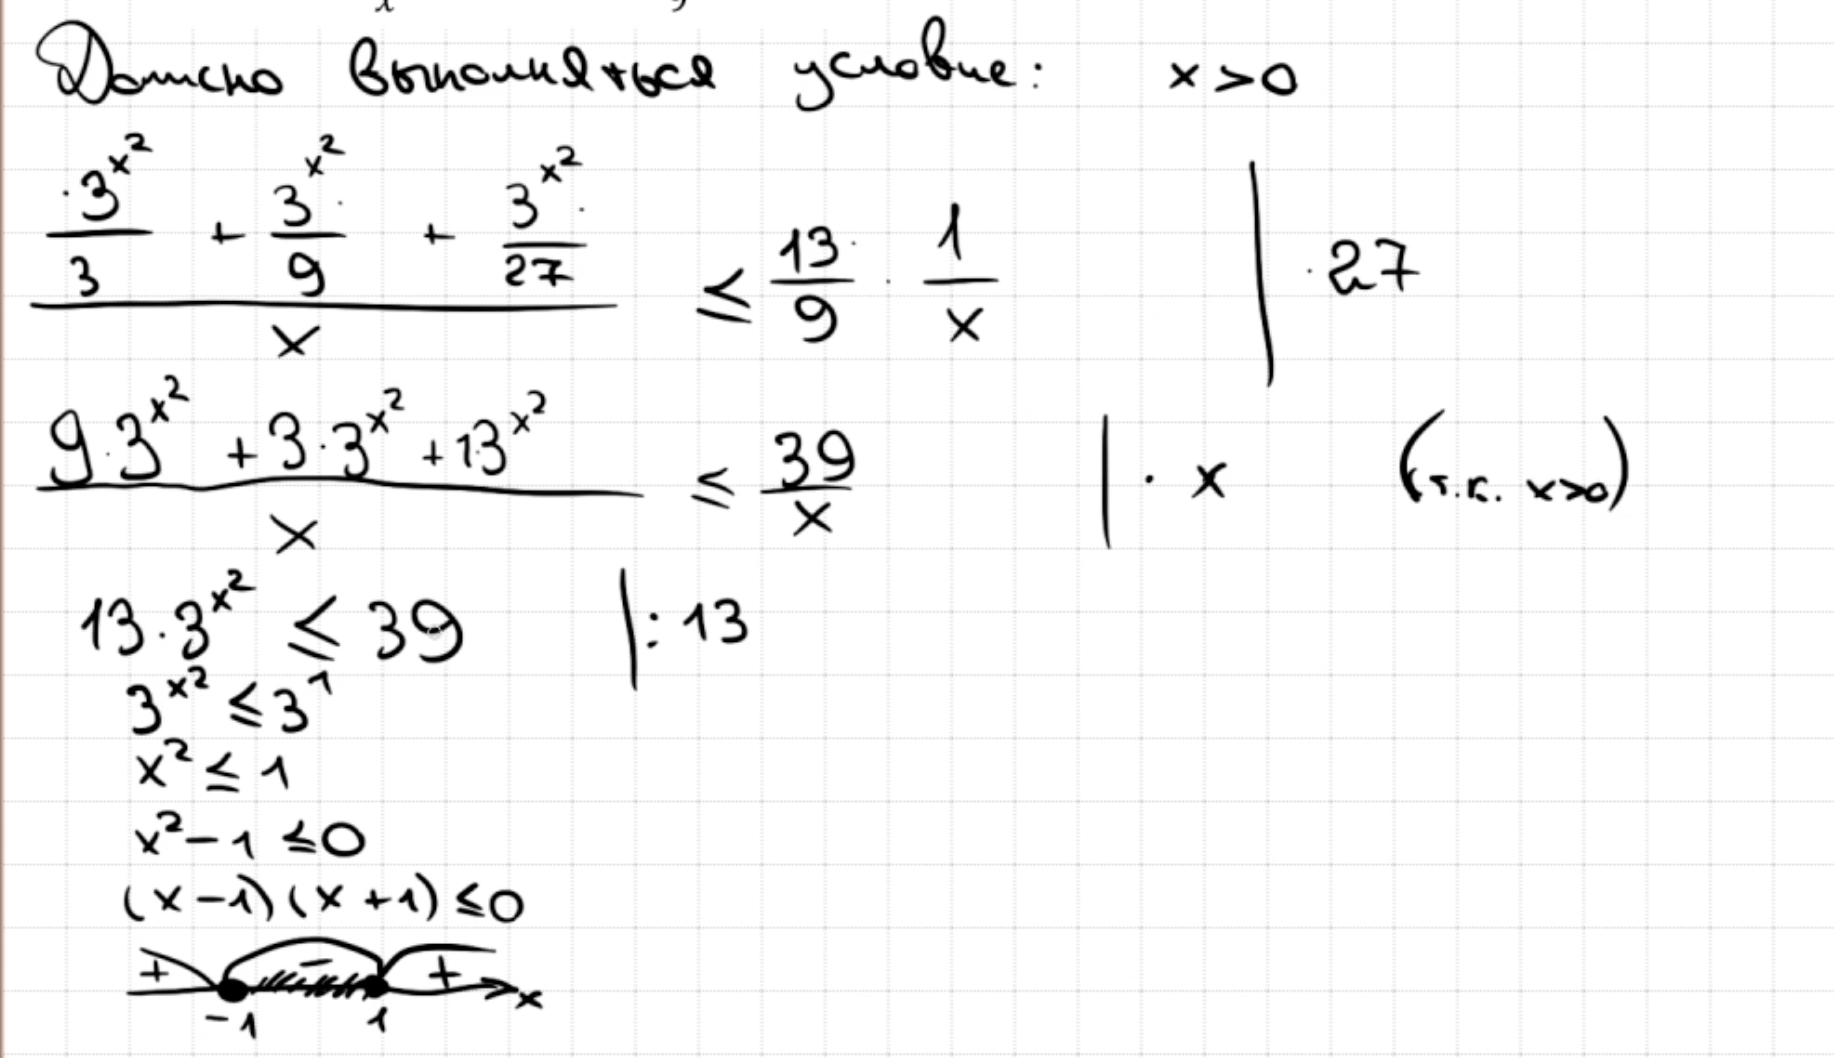 Должно выполняться условие: x>0
(·3^(x^2)/3 + 3^(x^2)·/9 + 3^(x^2)·/27)/x ≤ 13/9 · 1/x | ·27
(9·3^(x^2) + 3·3^(x^2) + 1·3^(x^2))/x ≤ 39/x | · x (т.к. x>0)
13·3^(x^2) ≤ 39 |: 13
3^(x^2) ≤ 3^1
x^2 ≤ 1
x^2 - 1 ≤ 0
(x-1)(x+1) ≤ 0
+ - + x
-1 1